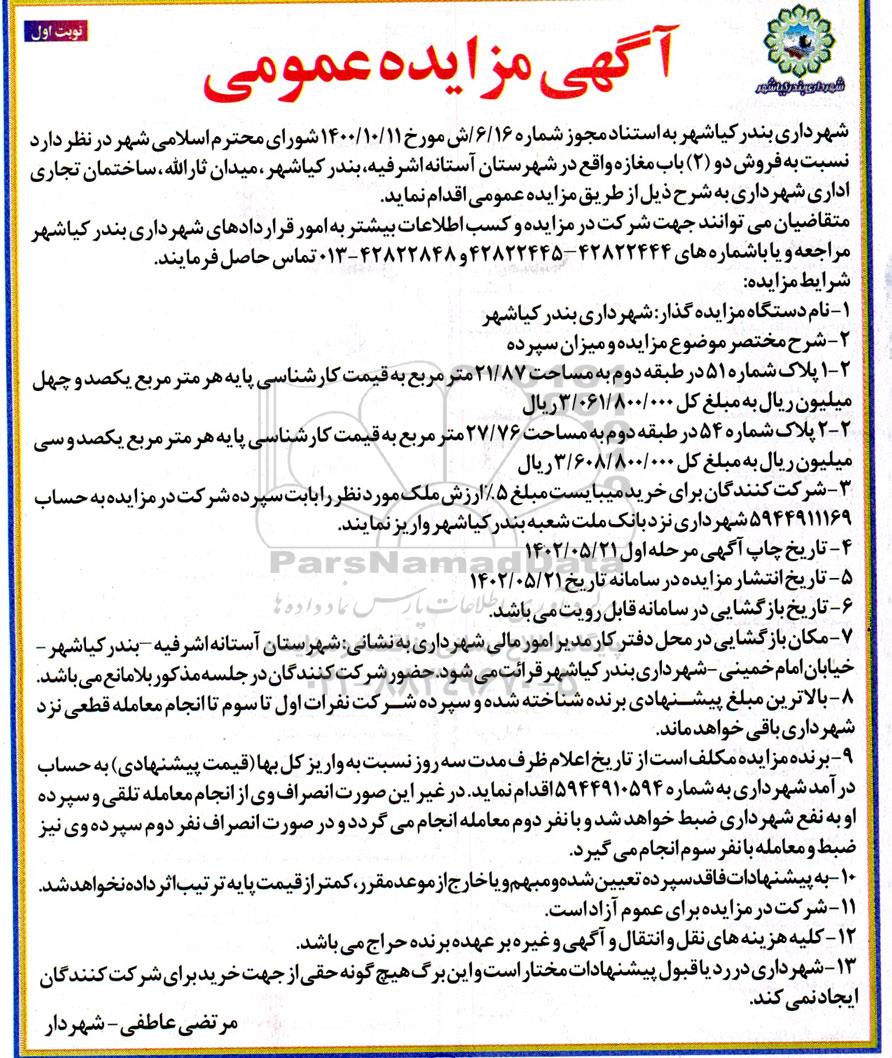 نوبت اول
شهرداری بندر کیاشهر
آگهی مزایده عمومی
شهرداری بندر کیاشهر به استناد مجوز شماره ۶/۱۶/ش مورخ ۱۴۰۰/۱۰/۱۱ شورای محترم اسلامی شهر در نظر دارد
نسبت به فروش دو (۲) باب مغازه واقع در شهرستان آستانه اشرفیه، بندر کیاشهر، میدان ثارالله، ساختمان تجاری
اداری شهرداری به شرح ذیل از طریق مزایده عمومی اقدام نماید.
متقاضیان می توانند جهت شرکت در مزایده و کسب اطلاعات بیشتر به امور قراردادهای شهرداری بندر کیاشهر
مراجعه و یا با شماره های ۴۲۸۲۲۴۴۴-۴۲۸۲۲۴۴۵ و ۴۲۸۲۲۸۴۸-۰۱۳ تماس حاصل فرمایند.
شرایط مزایده:
۱- نام دستگاه مزایده گذار: شهرداری بندر کیاشهر
۲- شرح مختصر موضوع مزایده و میزان سپرده
۲-۱ پلاک شماره ۵۱ در طبقه دوم به مساحت ۲۱/۸۷ متر مربع به قیمت کارشناسی پایه هر متر مربع یکصد و چهل
میلیون ریال به مبلغ کل ۳/۰۶۱/۸۰۰/۰۰۰ ریال
۲-۲ پلاک شماره ۵۴ در طبقه دوم به مساحت ۲۷/۷۶ متر مربع به قیمت کارشناسی پایه هر متر مربع یکصد و سی
میلیون ریال به مبلغ کل ۳/۶۰۸/۸۰۰/۰۰۰ ریال
۳- شرکت کنندگان برای خرید میبایست مبلغ ۵٪ ارزش ملک مورد نظر را بابت سپرده شرکت در مزایده به حساب
۵۹۴۴۹۱۱۱۶۹ شهرداری نزد بانک ملت شعبه بندر کیاشهر واریز نمایند.
۴- تاریخ چاپ آگهی مرحله اول ۱۴۰۲/۰۵/۲۱
۵- تاریخ انتشار مزایده در سامانه تاریخ ۱۴۰۲/۰۵/۲۱
۶- تاریخ بازگشایی در سامانه قابل رویت می باشد.
۷- مکان بازگشایی در محل دفتر کار مدیر امور مالی شهرداری به نشانی: شهرستان آستانه اشرفیه – بندر کیاشهر -
خیابان امام خمینی - شهرداری بندر کیاشهر قرائت می شود. حضور شرکت کنندگان در جلسه مذکور بلامانع می باشد.
۸- بالاترین مبلغ پیشنهادی برنده شناخته شده و سپرده شرکت نفرات اول تا سوم تا انجام معامله قطعی نزد
شهرداری باقی خواهد ماند.
۹- برنده مزایده مکلف است از تاریخ اعلام ظرف مدت سه روز نسبت به واریز کل بها (قیمت پیشنهادی) به حساب
درآمد شهرداری به شماره ۵۹۴۴۹۱۰۵۹۴ اقدام نماید. در غیر این صورت انصراف وی از انجام معامله تلقی و سپرده
او به نفع شهرداری ضبط خواهد شد و با نفر دوم معامله انجام می گردد و در صورت انصراف نفر دوم سپرده وی نیز
ضبط و معامله با نفر سوم انجام می گیرد.
۱۰- به پیشنهادات فاقد سپرده تعیین شده و مبهم و یا خارج از موعد مقرر، کمتر از قیمت پایه ترتیب اثر داده نخواهد شد.
۱۱- شرکت در مزایده برای عموم آزاد است.
۱۲- کلیه هزینه های نقل و انتقال و آگهی و غیره بر عهده برنده حراج می باشد.
۱۳- شهرداری در رد یا قبول پیشنهادات مختار است و این برگ هیچ گونه حقی از جهت خرید برای شرکت کنندگان
ایجاد نمی کند.
مرتضی عاطفی - شهردار
ParsNamadData